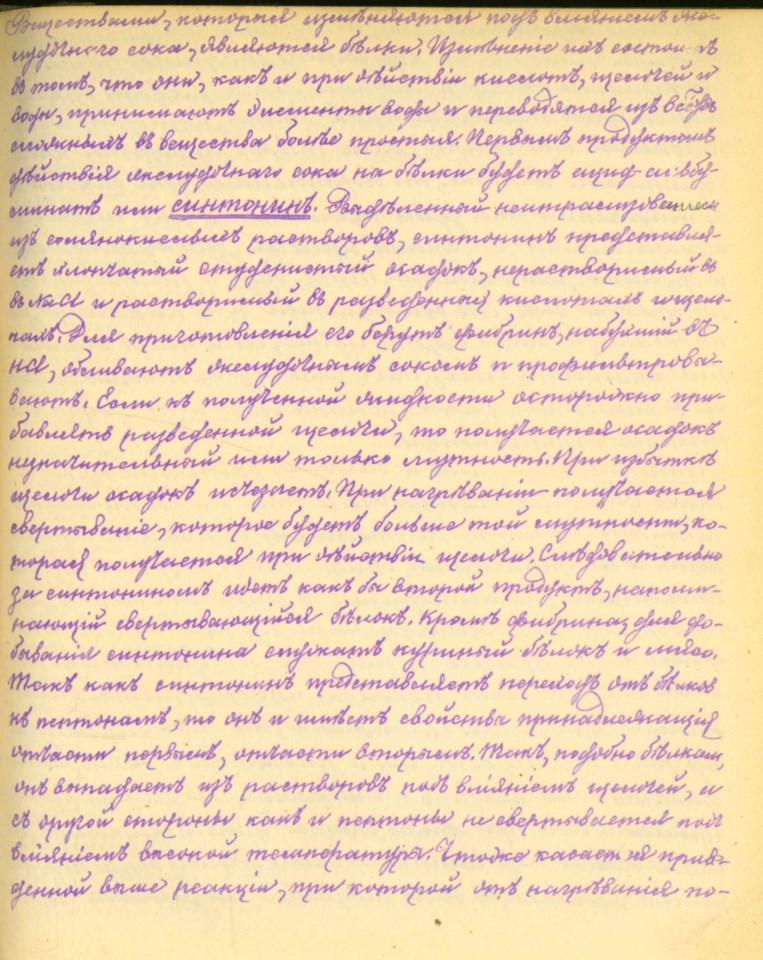 Веществами, которыя измѣняются подъ вліяніемъ же-
лудочнаго сока, являются бѣлки. Измѣненіе ихъ состоитъ
въ томъ, что они, какъ и при дѣйствіи кислотъ, щелочей и
воды, принимаютъ элементы воды и переводятся изъ веществъ
сложныхъ въ вещества болѣе простыя. Первымъ продуктомъ
дѣйствія желудочнаго сока на бѣлки будетъ ацид-альбу-
минатъ или синтонинъ. Выдѣленный нейтрализованіемъ
изъ солянокислыхъ растворовъ, синтонинъ представля-
етъ хлопчатый студенистый осадокъ, нерастворимый въ
въ NaCl и растворимый въ разведенныхъ кислотахъ и щело-
чахъ. Для приготовленія его берутъ фибринъ, набухшій въ
HCl, обливаютъ желудочнымъ сокомъ и профильтровы-
ваютъ. Если къ полученной жидкости осторожно при-
бавлять разведенной щелочи, то получается осадокъ
незначительный или только мутность. При избыткѣ
щелочи осадокъ исчезаетъ. При нагрѣваніи получается
свертываніе, которое будетъ больше той мутности, ко-
торая получается при дѣйствіи щелочи. Слѣдовательно
за синтониномъ идетъ какъ бы второй продуктъ, напоми-
нающій свертывающійся бѣлокъ. Кромѣ фибрина, для до-
быванія синтонина служатъ куриный бѣлокъ и мясо.
Такъ какъ синтонинъ представляетъ переходъ отъ бѣлковъ
къ пептонамъ, то онъ и имѣетъ свойства принадлежащія
отчасти первымъ, отчасти вторымъ. Такъ, подобно бѣлкамъ,
онъ выпадаетъ изъ растворовъ подъ вліяніемъ щелочей, и
съ другой стороны какъ и пептоны не свертывается подъ
вліяніемъ высокой температуры. Что же касается приве-
денной выше реакціи, при которой отъ нагрѣванія по-